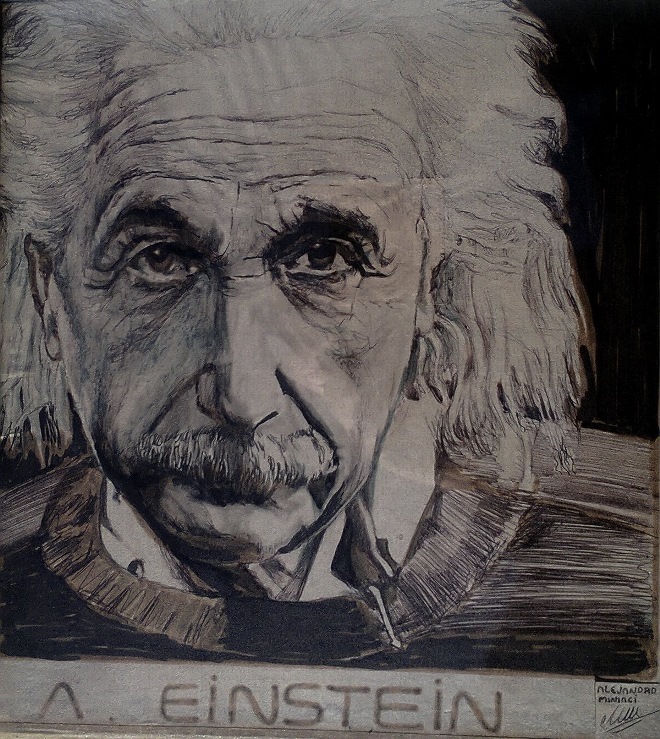 Λ. EiNSTEiN
ALEJANDRO
MiNiACi